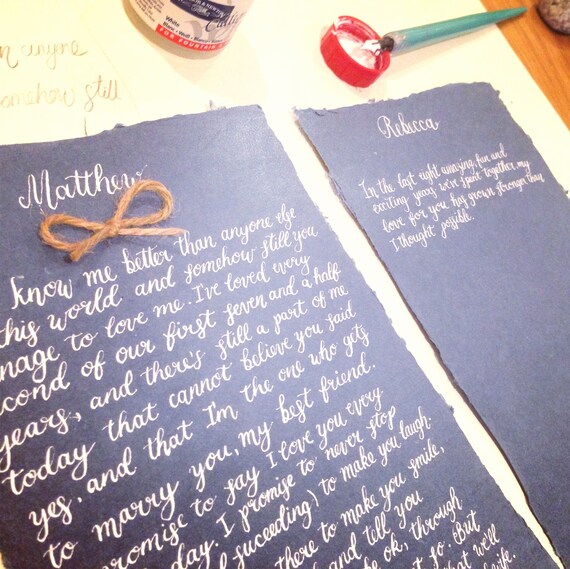 n anyone
omehow still
White
FOR FOUNTAIN
Matthew
Know me better than anyone else
this world and somehow still you
nage to love me. I've loved every
cond of our first seven and a half
years, and there's still a part of me
today that cannot believe you said
yes, and that I'm the one who gets
to marry you, my best friend.
romise to say I love you every
day. I promise to never stop
(suceeding) to make you laugh.
there to make you smile,
and tell you
be ok, through
so but
what we'll
Rebecca
In the last eight amazing, fun and
exciting years we've spent together my
love for you has grown stronger than
I thought possible.